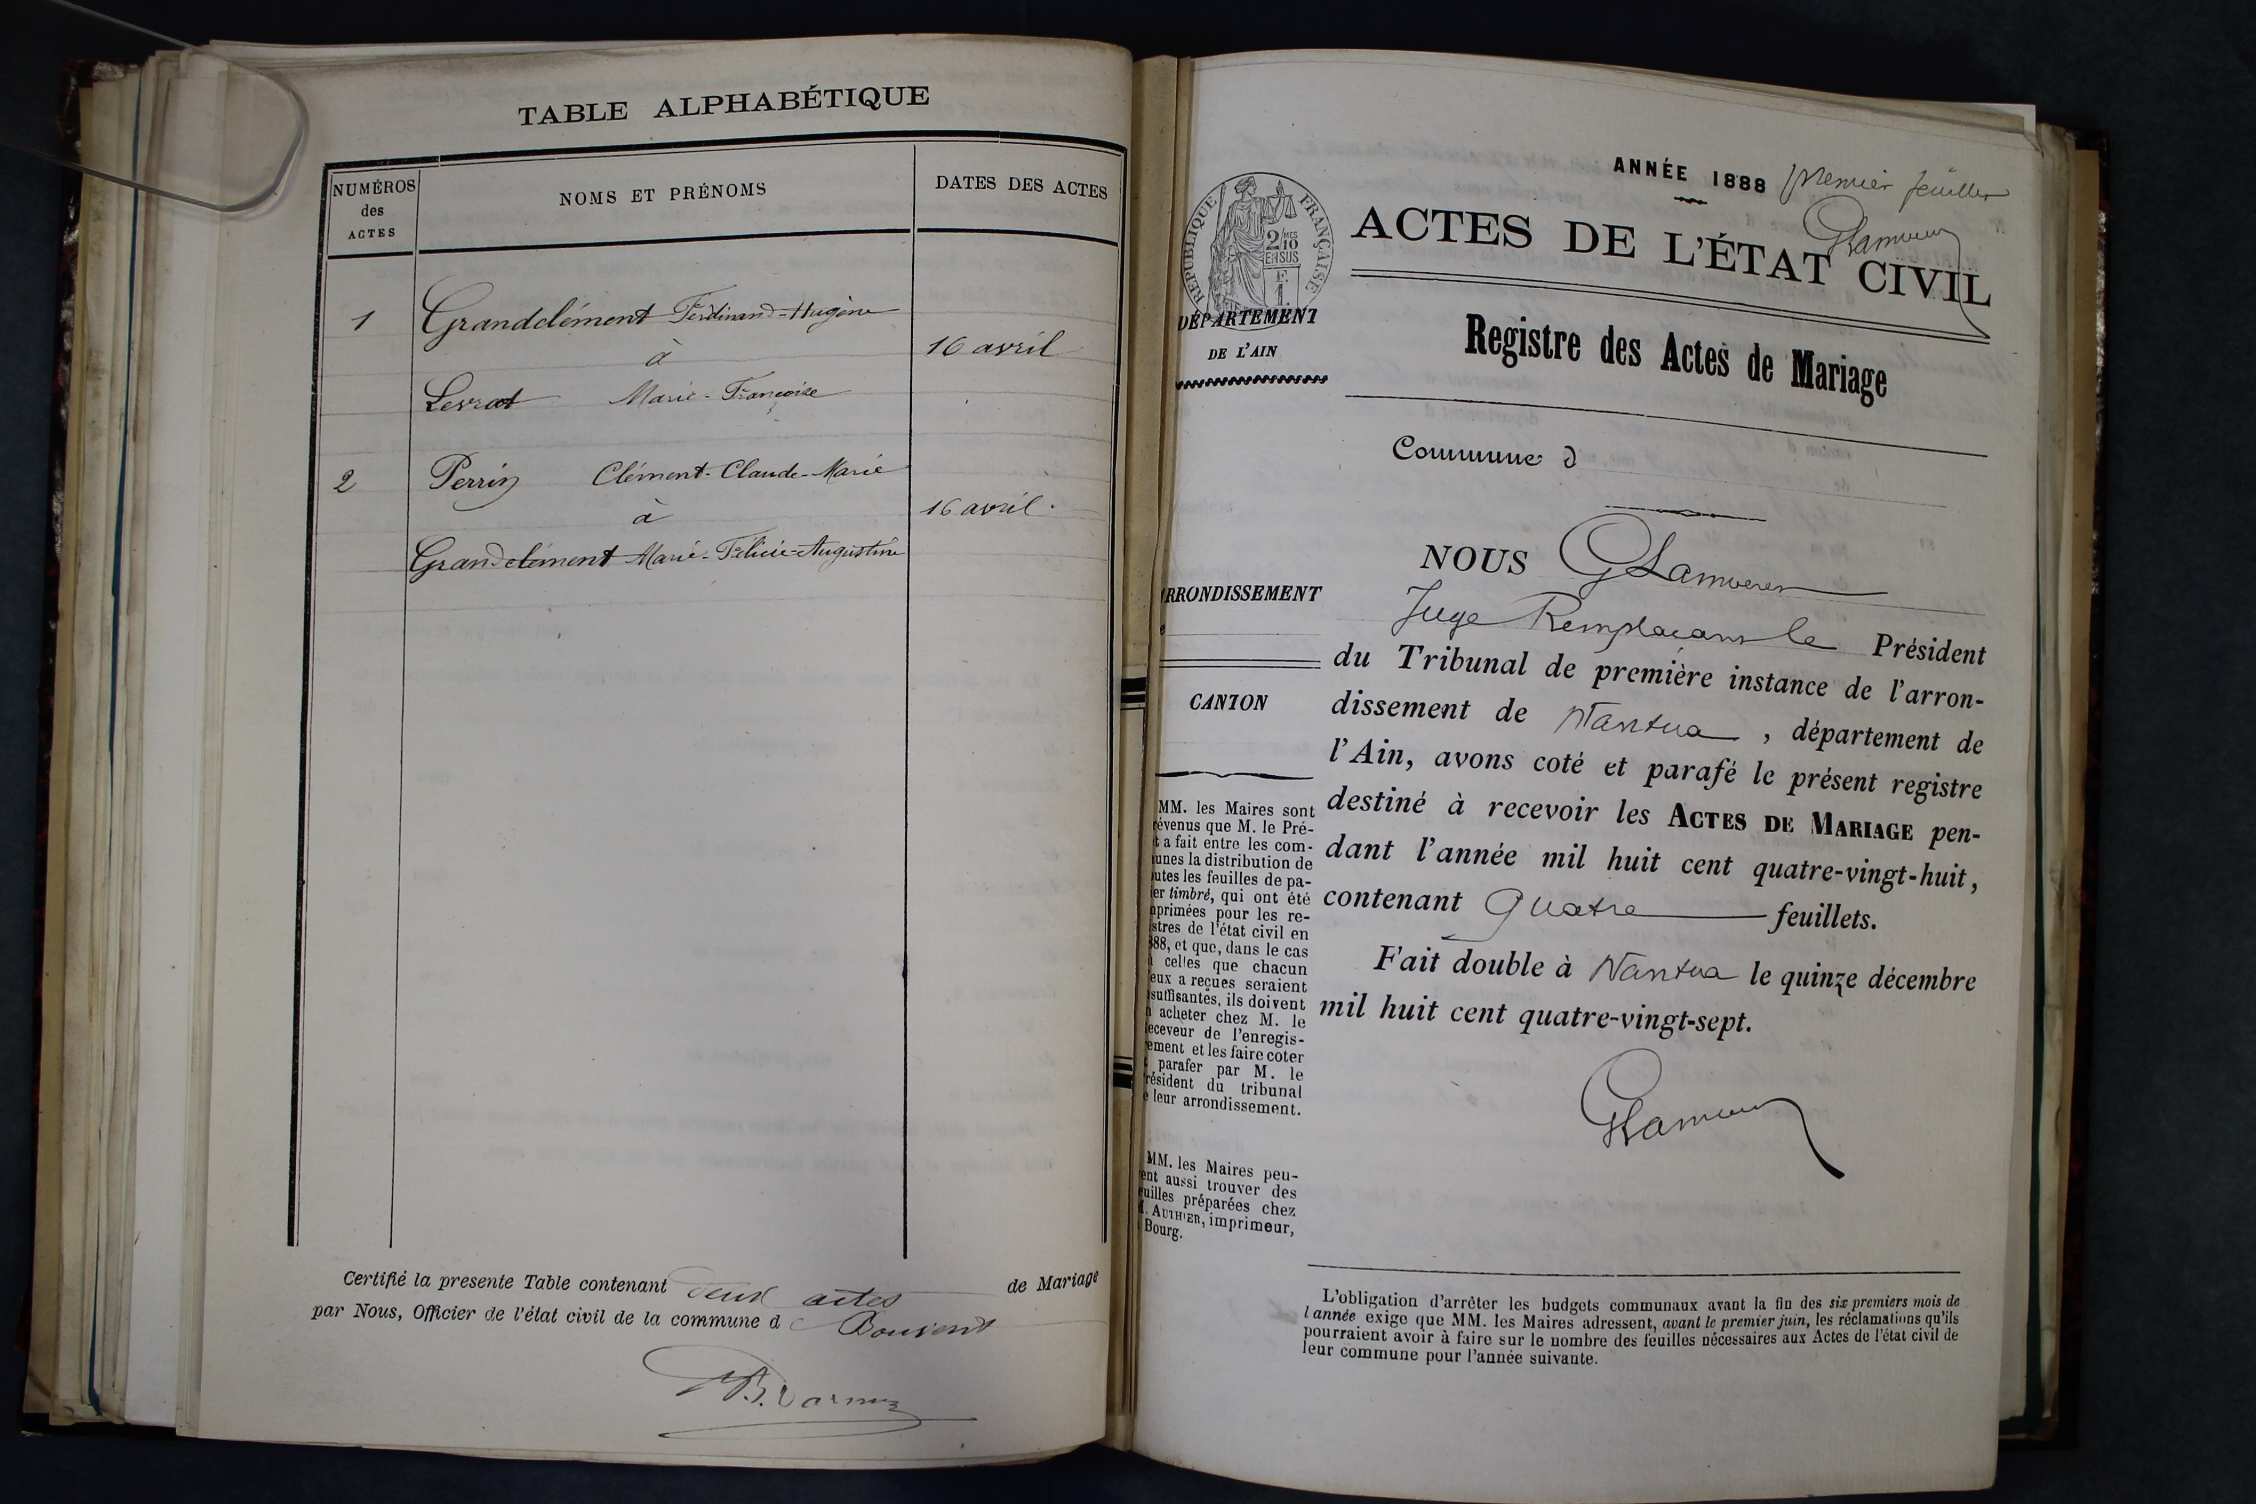 TABLE ALPHABÉTIQUE
NUMÉROS
des
ACTES
NOMS ET PRÉNOMS
DATES DES ACTES
1 Grandclément Ferdinand-Hugène
à
16 avril
Levrat Marie-Françoise
2 Perrin Clément-Claude-Marie
à
16 avril.
Grandclément Marie-Félicie-Augustine
Certifié la presente Table contenant deux actes de Mariage
par Nous, Officier de l'état civil de la commune d
ANNÉE 1888 premier feuillet
RÉPUBLIQUE FRANÇAISE
2/10
MES
EN SUS
F.
1.
ACTES DE L'ÉTAT CIVIL
DÉPARTEMENT
DE L'AIN
Registre des Actes de Mariage
Commune d
NOUS
Juge Remplaçant le Président
du Tribunal de première instance de l'arron-
dissement de Nantua, département de
l'Ain, avons coté et parafé le présent registre
destiné à recevoir les ACTES DE MARIAGE pen-
dant l'année mil huit cent quatre-vingt-huit,
contenant quatre feuillets.
Fait double à Nantua le quinze décembre
mil huit cent quatre-vingt-sept.
RRONDISSEMENT
e
CANTON
MM. les Maires sont
révenus que M. le Pré-
t a fait entre les com-
unes la distribution de
utes les feuilles de pa-
er timbré, qui ont été
mprimées pour les re-
stres de l'état civil en
888, et que, dans le cas
ù celles que chacun
eux a reçues seraient
suffisantes, ils doivent
n acheter chez M. le
eceveur de l'enregis-
ement et les faire coter
t parafer par M. le
résident du tribunal
e leur arrondissement.
MM. les Maires peu-
ent aussi trouver des
uilles préparées chez
M. AUTHIER, imprimeur,
Bourg.
L'obligation d'arrêter les budgets communaux avant la fin des six premiers mois de
l'année exige que MM. les Maires adressent, avant le premier juin, les réclamations qu'ils
pourraient avoir à faire sur le nombre des feuilles nécessaires aux Actes de l'état civil de
leur commune pour l'année suivante.